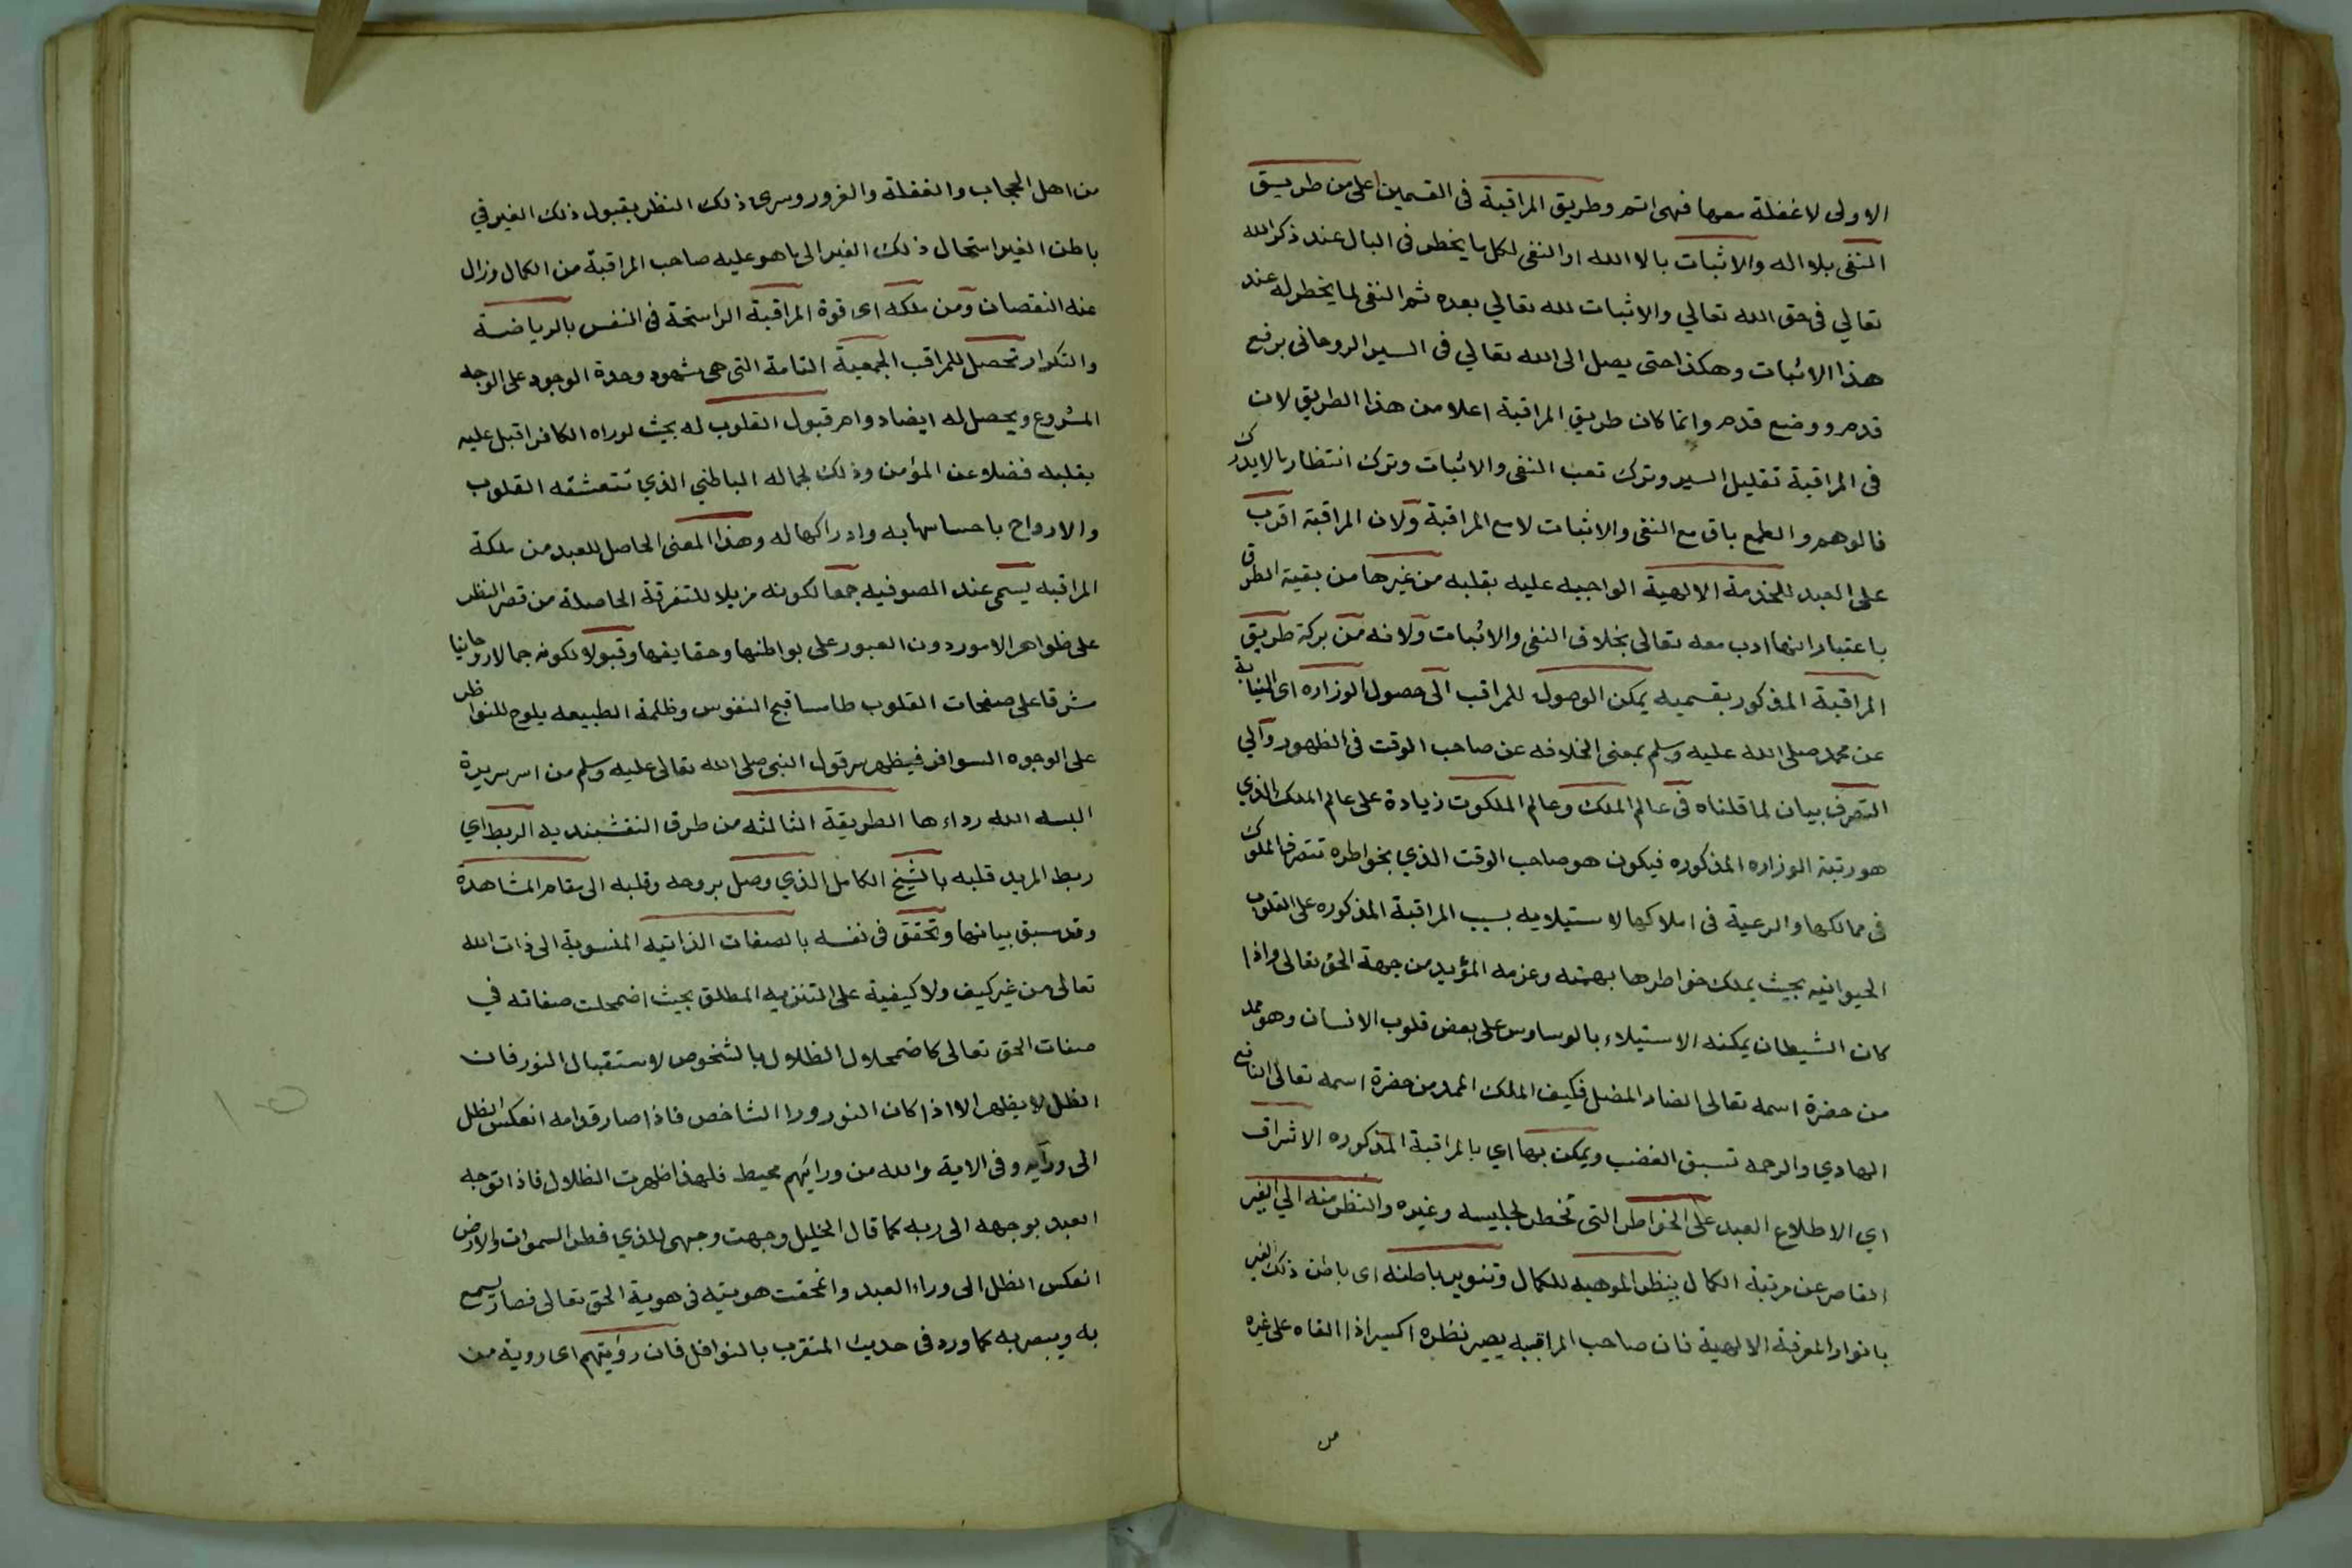 الاولى لا غفلة معها فهى اتم وطريق المراقبة فى القسمين اعلى من طريق
النفى بلا اله والاثبات بالا الله او النفى لكل ما يخطر فى البال عند ذكر الله
تعالي فى حق الله تعالي والاثبات لله تعالي بعده ثم النفى لما يخطر له عند
هذا الاثبات وهكذا حتى يصل الى الله تعالي فى السير الروحانى برفع
قدم ووضع قدم وانما كان طريق المراقبة اعلا من هذا الطريق لان
فى المراقبة تقليل السير وترك تعب النفى والاثبات وترك انتظار ما لا يدرك
فالوهم والطمع باق مع النفى والاثبات لا مع المراقبة ولان المراقبة اقرب
على العبد للخدمة الالهية الواجبه عليه بقلبه من غيرها من بقية الطرق
باعتبار انها ادب معه تعالى بخلاف النفى والاثبات ولانه من بركة طريق
المراقبة المذكور بقسميه يمكن الوصول للمراقب الى حصول الوزاره اى النيابة
عن محمد صلى الله عليه وسلم بمعنى الخلافه عن صاحب الوقت فى الظهور والي
التصرف بيان لما قلناه فى عالم الملك وعالم الملكوت زيادة على عالم الملك الذي
هو رتبة الوزاره المذكوره فيكون هو صاحب الوقت الذي بخواطره تتصرف الملوك
فى ممالكها والرعية فى املاكها لاستيلايه بسبب المراقبة المذكوره على القلوب
الحيوانيه بحيث يملك خواطرها بهمته وعزمه المؤيد من جهة الحق تعالى واذا
كان الشيطان يمكنه الاستيلاء بالوساوس على بعض قلوب الانسان وهو ممد
من حضرة اسمه تعالى الضار المضل فكيف الملك الممد من حضرة اسمه تعالى النافع
الهادي والرحمه تسبق الغضب ويمكن بها اي بالمراقبة المذكوره الاشراف
اي الاطلاع العبد على الخواطر التى تخطر لجليسه وغيره والنظر منه الي الغير
القاصر عن مرتبة الكمال بنظر الموهبه للكمال وتنوير باطنه اى باطن ذلك الغير
بانوار المعرفة الالهية فان صاحب المراقبه يصير نظره اكسيرا اذا القاه على غيره
من
من اهل الحجاب والغفلة والغرور وسرى ذلك النظر بقبول ذلك الغير في
باطن الغير استحال ذلك الغير الى ما هو عليه صاحب المراقبة من الكمال وزال
عنه النقصان ومن ملكه اى قوة المراقبة الراسخة فى النفس بالرياضة
والتكرار تحصل للمراقب الجمعية التامة التى هى شهود وحدة الوجود على الوجه
المشروع ويحصل له ايضا دوام قبول القلوب له بحيث لو راه الكافر اقبل عليه
بقلبه فضلا عن المؤمن وذلك لجماله الباطني الذي تتعشقه القلوب
والارواح باحساسها به وادراكها له وهذا المعنى الحاصل للعبد من ملكة
المراقبه يسمى عند الصوفيه جمعا لكونه مزيلا للتفرقة الحاصلة من قصر النظر
على ظواهر الامور دون العبور على بواطنها وحقايقها وقبولا لكونه جمالا روحانيا
مشرقا على صفحات القلوب طامسا قبح النفوس وظلمة الطبيعه يلوح للنواظر
على الوجوه السوافر فيظهر سر قول النبى صلى الله تعالى عليه وسلم من اسر سريرة
البسه الله رداءها الطريقة الثالثه من طرق النقشبنديه الربط اي
ربط المريد قلبه بالشيخ الكامل الذي وصل بروحه وقلبه الى مقام المشاهدة
وقد سبق بيانها وتحقق فى نفسه بالصفات الذاتيه المنسوبة الى ذات الله
تعالى من غير كيف ولا كيفية على التنزيه المطلق بحيث اضمحلت صفاته في
صفات الحق تعالى كاضمحلال الظلال بالشخوص لاستقبال النور فان
الظل لا يظهر الا اذا كان النور ورا الشاخص فاذا صار قدامه انعكس الظل
الى ورآيه وفى الاية والله من ورائهم محيط فلهذا ظهرت الظلال فاذا توجه
العبد بوجهه الى ربه كما قال الخليل وجهت وجهى للذي فطر السموات والارض
انعكس الظل الى وراء العبد وانمحقت هويته فى هوية الحق تعالى فصار يسمع
به ويبصر به كما ورد فى حديث المتقرب بالنوافل فان رؤيتهم اى روية من